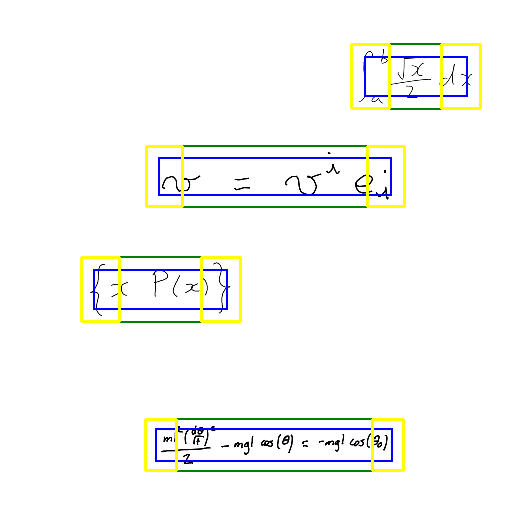 ∫_a^b √x/2 dx
v = v^i e_i
{x P(x)}
ml²(dθ/dt)²/2 - mgl cos(θ) = -mgl cos(θ₀)